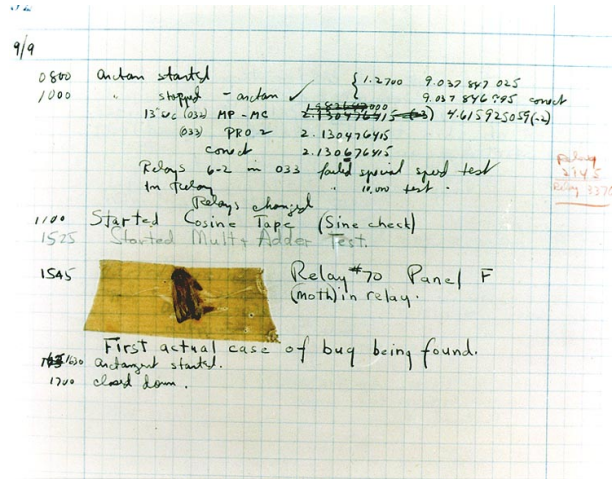 9/9
0800 Antan started
1000 " stopped - antan ✓ { 1.2700 9.037 847 025
9.037 846 995 conect
13"uc (032) MP - MC 2.130476415 (-3) 4.615925059(-2)
(033) PRO 2 2.130476415
conect 2.130676415
Relays 6-2 in 033 failed special speed test
In Relay " 10,000 test.
Relays changed
Relay
2145
Relay 3370
1100 Started Cosine Tape (Sine check)
1525 Started Mult + Adder Test.
1545 Relay #70 Panel F
(moth) in relay.
First actual case of bug being found.
1630 antangent started.
1700 closed down.